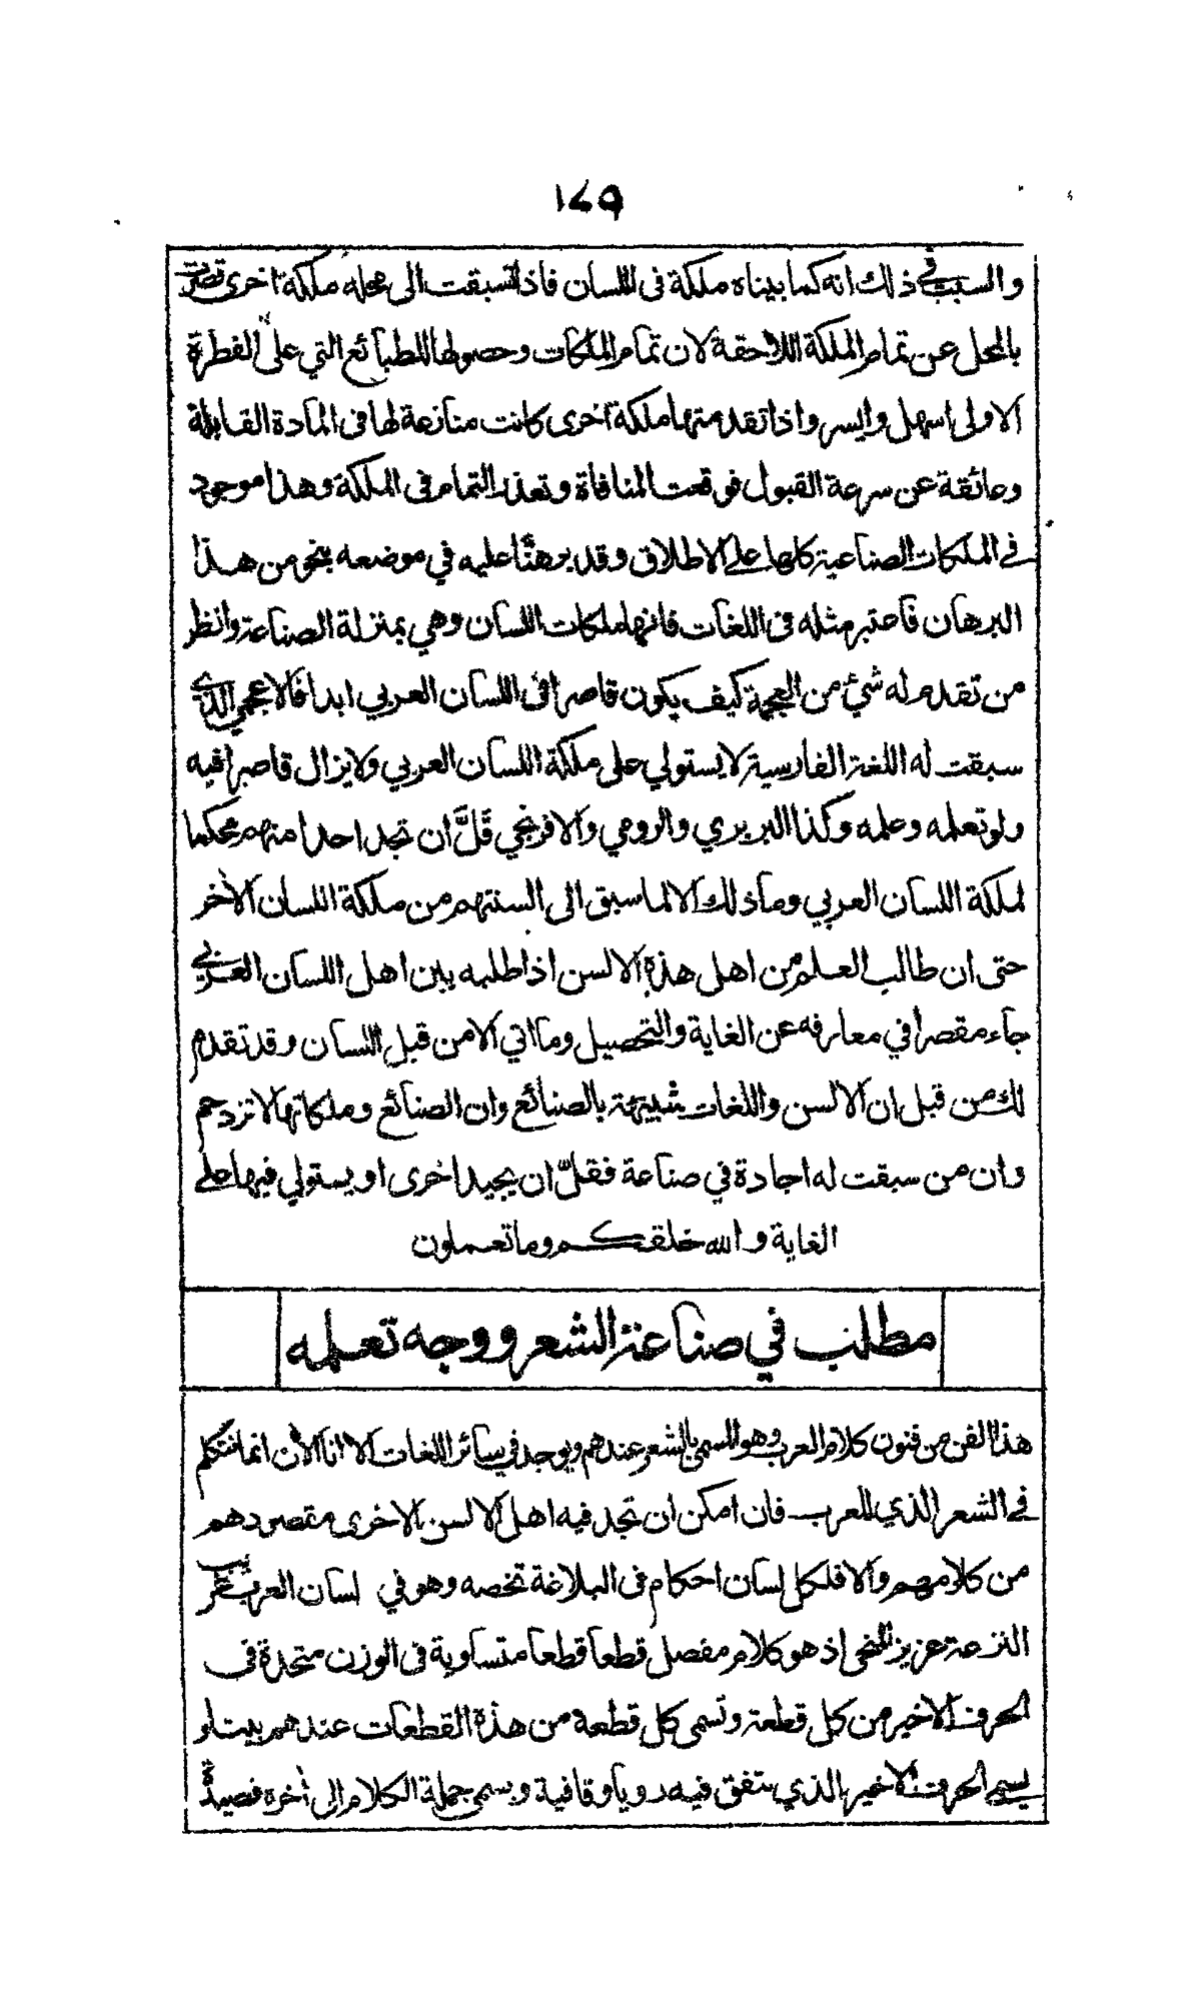 ١٤٩
والسبب في ذلك انه كما بيناه ملكة في اللسان فاذا سبقت الى محله ملكة اخرى قصرت
بالمحل عن تمام الملكة اللاحقة لان تمام الملكات وحصولها للطبائع التي على الفطرة
الاولى اسهل وايسر واذا تقدمتها ملكة اخرى كانت منازعة لها في المادة القابلة
وعائقة عن سرعة القبول فوقعت المنافاة وتعذر التمام في الملكة وهذا موجود
في الملكات الصناعية كلها على الاطلاق وقد برهنّا عليه في موضعه بنحو من هذا
البرهان فاعتبر مثله في اللغات فانها ملكات اللسان وهي بمنزلة الصناعة وانظر
من تقدم له شيٌ من العجمة كيف يكون قاصرا في اللسان العربي ابدا فالاعجمي الذي
سبقت له اللغة الفارسية لا يستولي على ملكة اللسان العربي ولا يزال قاصرا فيه
ولو تعلمه وعلمه وكذا البربري والرومي والافرنجي قَلَّ ان تجد احدا منهم محكما
لملكة اللسان العربي وما ذلك الا لما سبق الى السنتهم من ملكة اللسان الآخر
حتى ان طالب العلم من اهل هذه الالسن اذا طلبه بين اهل اللسان العربي
جاء مقصرا في معارفه عن الغاية والتحصيل وما اتي الا من قبل اللسان وقد تقدم
لك من قبل ان الالسن واللغات شبيهة بالصنائع وان الصنائع وملكاتها لا تزدحم
وان من سبقت له اجادة في صناعة فقلّ ان يجيد اخرى او يستولي فيها على
الغاية والله خلقكم وما تعملون
مطلب في صناعة الشعر ووجه تعلمه
هذا الفن من فنون كلام العرب وهو المسمى بالشعر عندهم ويوجد في سائر اللغات الا انا الآن انما نتكلم
في الشعر الذي للعرب فان امكن ان تجد فيه اهل الالسن الاخرى مقصودهم
من كلامهم والا فلكل لسان احكام في البلاغة تخصه وهو في لسان العرب غريب
النزعة عزيز المنحى اذ هو كلام مفصل قطعا قطعا متساوية في الوزن متحدة في
الحرف الاخير من كل قطعة وتسمى كل قطعة من هذه القطعات عندهم بيتا و
يسمى الحرف الاخير الذي تتفق فيه رويا وقافية ويسمى جملة الكلام الى آخره قصيدة